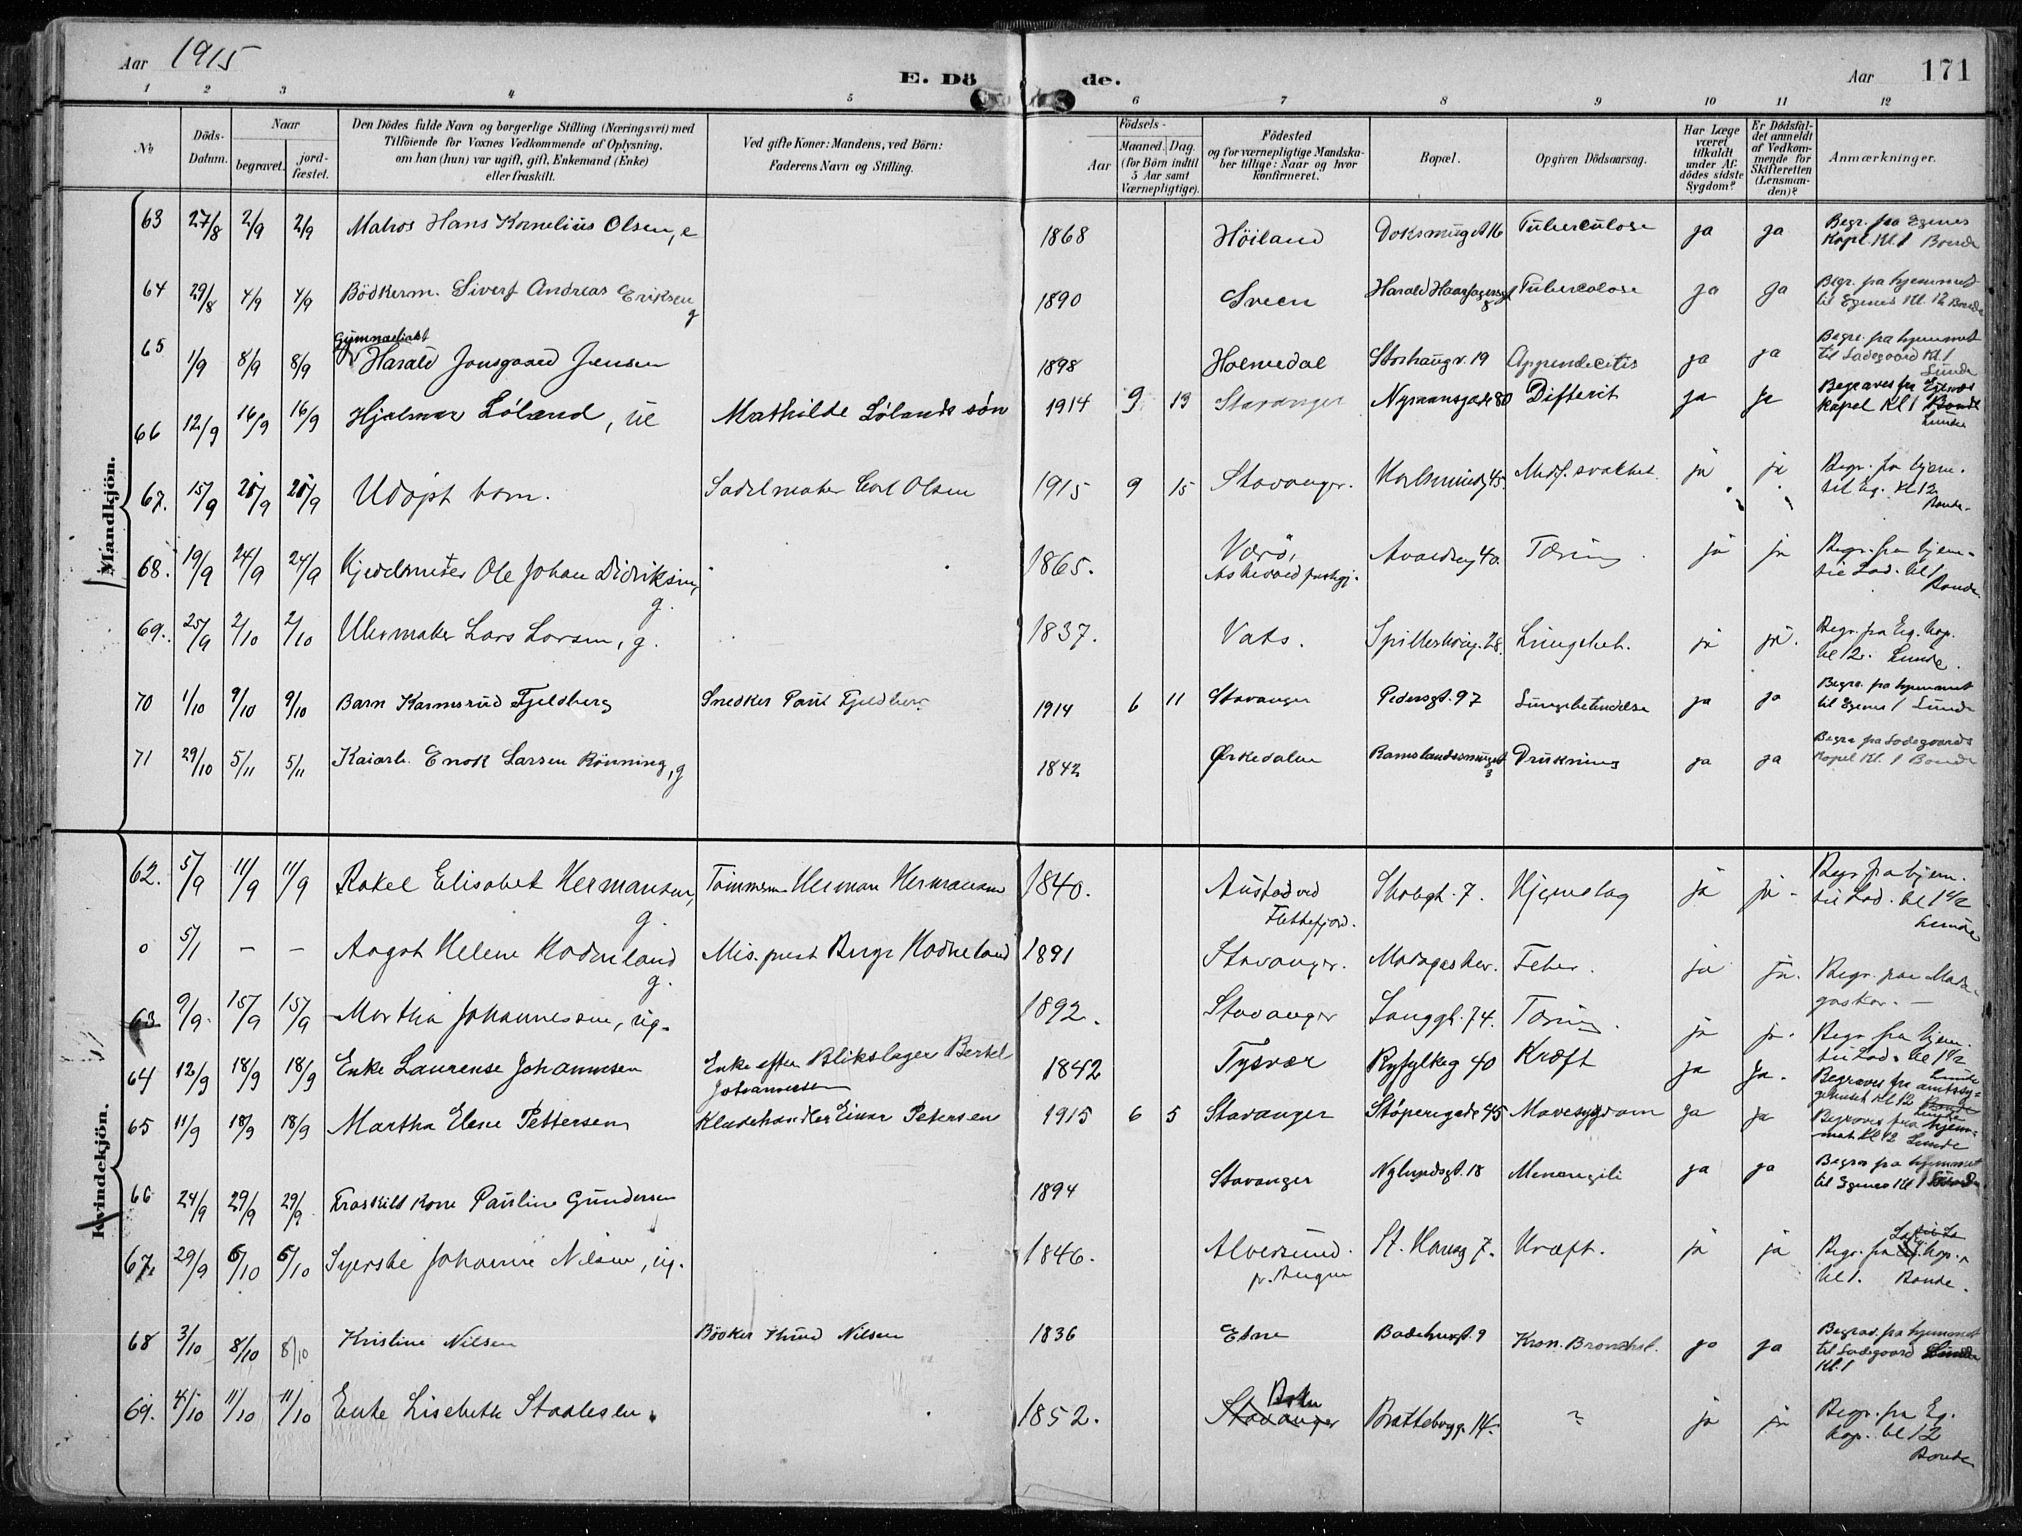 Aar 1915 E. Dö de. Aar 171
1 2 3 4 5 6 7 8 9 10 11 12
No Döds-Datum. Naar begravet. jord-fæstet. Den Dödes fulde Navn og borgerlige Stilling (Næringsvei) med Tilföiende for Voxnes Vedkommende af Oplysning, om han (hun) var ugift, gift, Enkemand (Enke) eller fraskilt. Ved gifte Koner: Mandens, ved Börn: Faderens Navn og Stilling. Födsels- Aar Maaned. Dag. (for Börn indtil 5 Aar samt Værnepligtige). Födested og for værnepligtige Mandska-ber tillige: Naar og hvor konfirmeret. Bopæl. Opgiven Dödsaarsag. Har Læge været tilkaldt under Af-dödes sidste Sygdom? Er Dödsfal-det anmeldt af Vedkom-mende for Skifteretten (Lensman-den)? Anmærkninger.
Mandkjön.
63 27/8 2/9 2/9 Matros Hans Kornelius Olsen, e 1868 Höiland Doksmuget 16 Tuberculose ja ja Begr. fra Egenes Kapel Kl. 1 Bonde
64 29/8 4/9 4/9 Bödkerm. Sivert Andreas Eriksen g 1890 Sveen Harald Haarfagersgt 8 Tuberculose ja ja Begr. fra hjemmet til Egenes Kl. 12 Bonde
65 1/9 8/9 8/9 Gymnasiast Harald Jonsgaard Jensen 1898 Holmedal Storhaugv. 19 Appendecitis ja ja Begr. fra hjemmet til Ladegaard Kl. 1 Lunde
66 12/9 16/9 16/9 Hjalmar Löland, u Mathilde Lölands sön 1914 9 19 Stavanger Nymansgade 80 Difterit ja ja Begraves fra Egenes Kapel Kl 1 Bonde Lunde
67. 15/9 21/9 21/9 Udöpt barn. Sadelmaker Carl Olsen 1915 9 15 Stavanger. Karlsmindeg 45. Medf. svakhet. ja ja Begr. fra hjem. til Eg. Kl 12 Bonde.
68. 19/9 24/9 24/9 Kjedelmester Ole Johan Didriksen, g. 1865. Værö, Askevold prstgj. Avaldsng 40. Tæring. ja ja Begr. fra hjem. til Lad. kl 1 Bonde.
69. 25/9 2/10 2/10 Uhrmaker Lars Larsen, g. 1837. Vats. Spilderhaug. 28. Lungebet. ja ja. Begr. fra Eg. kap. kl 12. Lunde.
70 1/10 9/10 9/10 Barn Karmsrud Fjeldberg Snedker Paul Fjeldberg 1914 6 11 Stavanger Pedersgt. 97 Lungebetendelse ja ja Begr. fra hjemmet til Egenes 1 Lunde
71 29/10 5/11 5/11 Kaiarb. Enok Larsen Rönning, g 1842 Ørkedalen Ramslandssmuget 3 Drukning ja ja Begr. fra Ladegaards Kapel Kl. 1 Bonde
Kvindekjön.
62. 5/9 11/9 11/9 Rakel Elisabet Hermansen, g. Tömmerm. Herman Hermansen 1840. Austad ved Flekkefjord. Skolegt. 7. Hjerneslag ja ja Begr. fra hjem. til Lad. kl 1 1/2 Lunde
0 5/1 — — Aagot Helene Hodneland g. Mis. prest Birger Hodneland 1891 Stavanger. Madagaskar. Feber. ja ja. Begr. paa Mada-gaskar. —
63 9/9. 15/9 15/9 Martha Johannessen, ug. 1892. Stavanger Langgt. 74. Tæring. ja ja. Begr. fra hjem. til Lad. kl 1 1/2 Lunde
64 12/9 18/9 18/9 Enke Laurense Johannesen Enke efter Blikslager Bertel Johannesen 1842 Tysvær Ryfylkeg 40 Kræft ja ja. Begraves fra amtssy-gehuset Kl. 12 Bonde Lunde
65 11/9 18/9 18/9 Martha Elene Pettersen Kladehandler Einar Petersen 1915 6 5 Stavanger Støperigade 45 Mavesygdom ja ja Begraves fra hjem-met Kl 12 Lunde
66 24/9 29/9 29/9 Fraskilt kone Pauline Gundersen 1894 Stavanger Nylundsgt. 18 Menengiti ja ja Begraves fra hjemmet til Egenes Kl 1
67. 29/9 6/10 6/10 Syerske Johanne Nilsen, ug. 1846. Alversund. pr. Bergen St. Hansg 7. Kræft. ja ja Begr. fra kap. kl 1. Bonde.
68 3/10 8/10 8/10 Kristine Nilsen Bödker Knud Nilsen 1836 Etne Badehusgt. 9 Kron. Bronchit. ja ja Begrav. fra hjemmet til Ladegaard Lunde Kl. 1
69. 4/10 11/10 11/10 Enke Lisebeth Staalesen. 1852. Stavanger Bokn Brattebrog. 14. ? ja ja Begr. fra Eg. kap. kl 12 Bonde